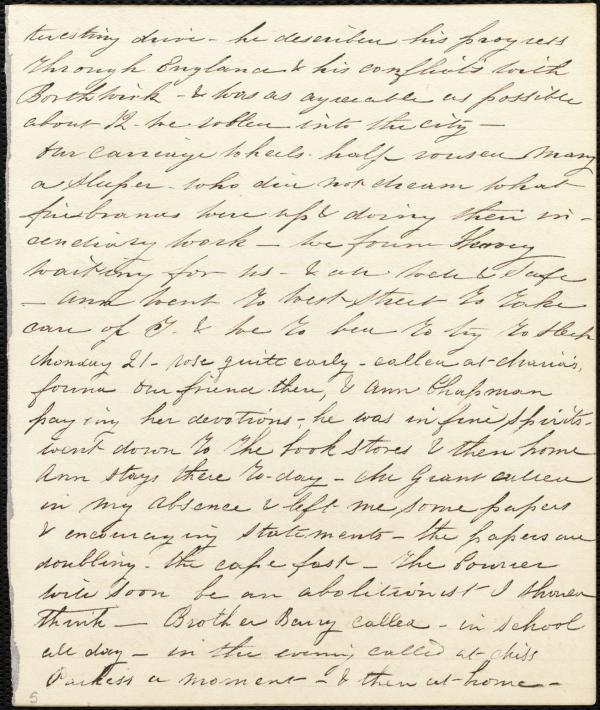 teresting drive - he described his progress
through England & his conflicts with
Borthwick - & was as agreeable as possible
about 12 we rolled into the city -
Our carriage wheels half roused many
a sleeper - who did not dream what
firebrands were up & doing their in-
cendiary work - we found Henry
waiting for us - & all well & safe
- Ann went to West Street to take
care of T. & we to bed to try to sleep
Monday 21 - rose quite early - called at Maria's,
found our friend there, & Ann Chapman
paying her devotions, he was in fine spirits -
went down to the book stores & then home
Ann stays there to-day - Mr Grant called
in my absence & left me some papers
& encouraging statements - the papers are
doubling. the cape fast - The Courier
will soon be an abolitionist I should
think - Brother Benny called - in school
all day - in the evening called at Miss
Parkers a moment - & then at home -
5